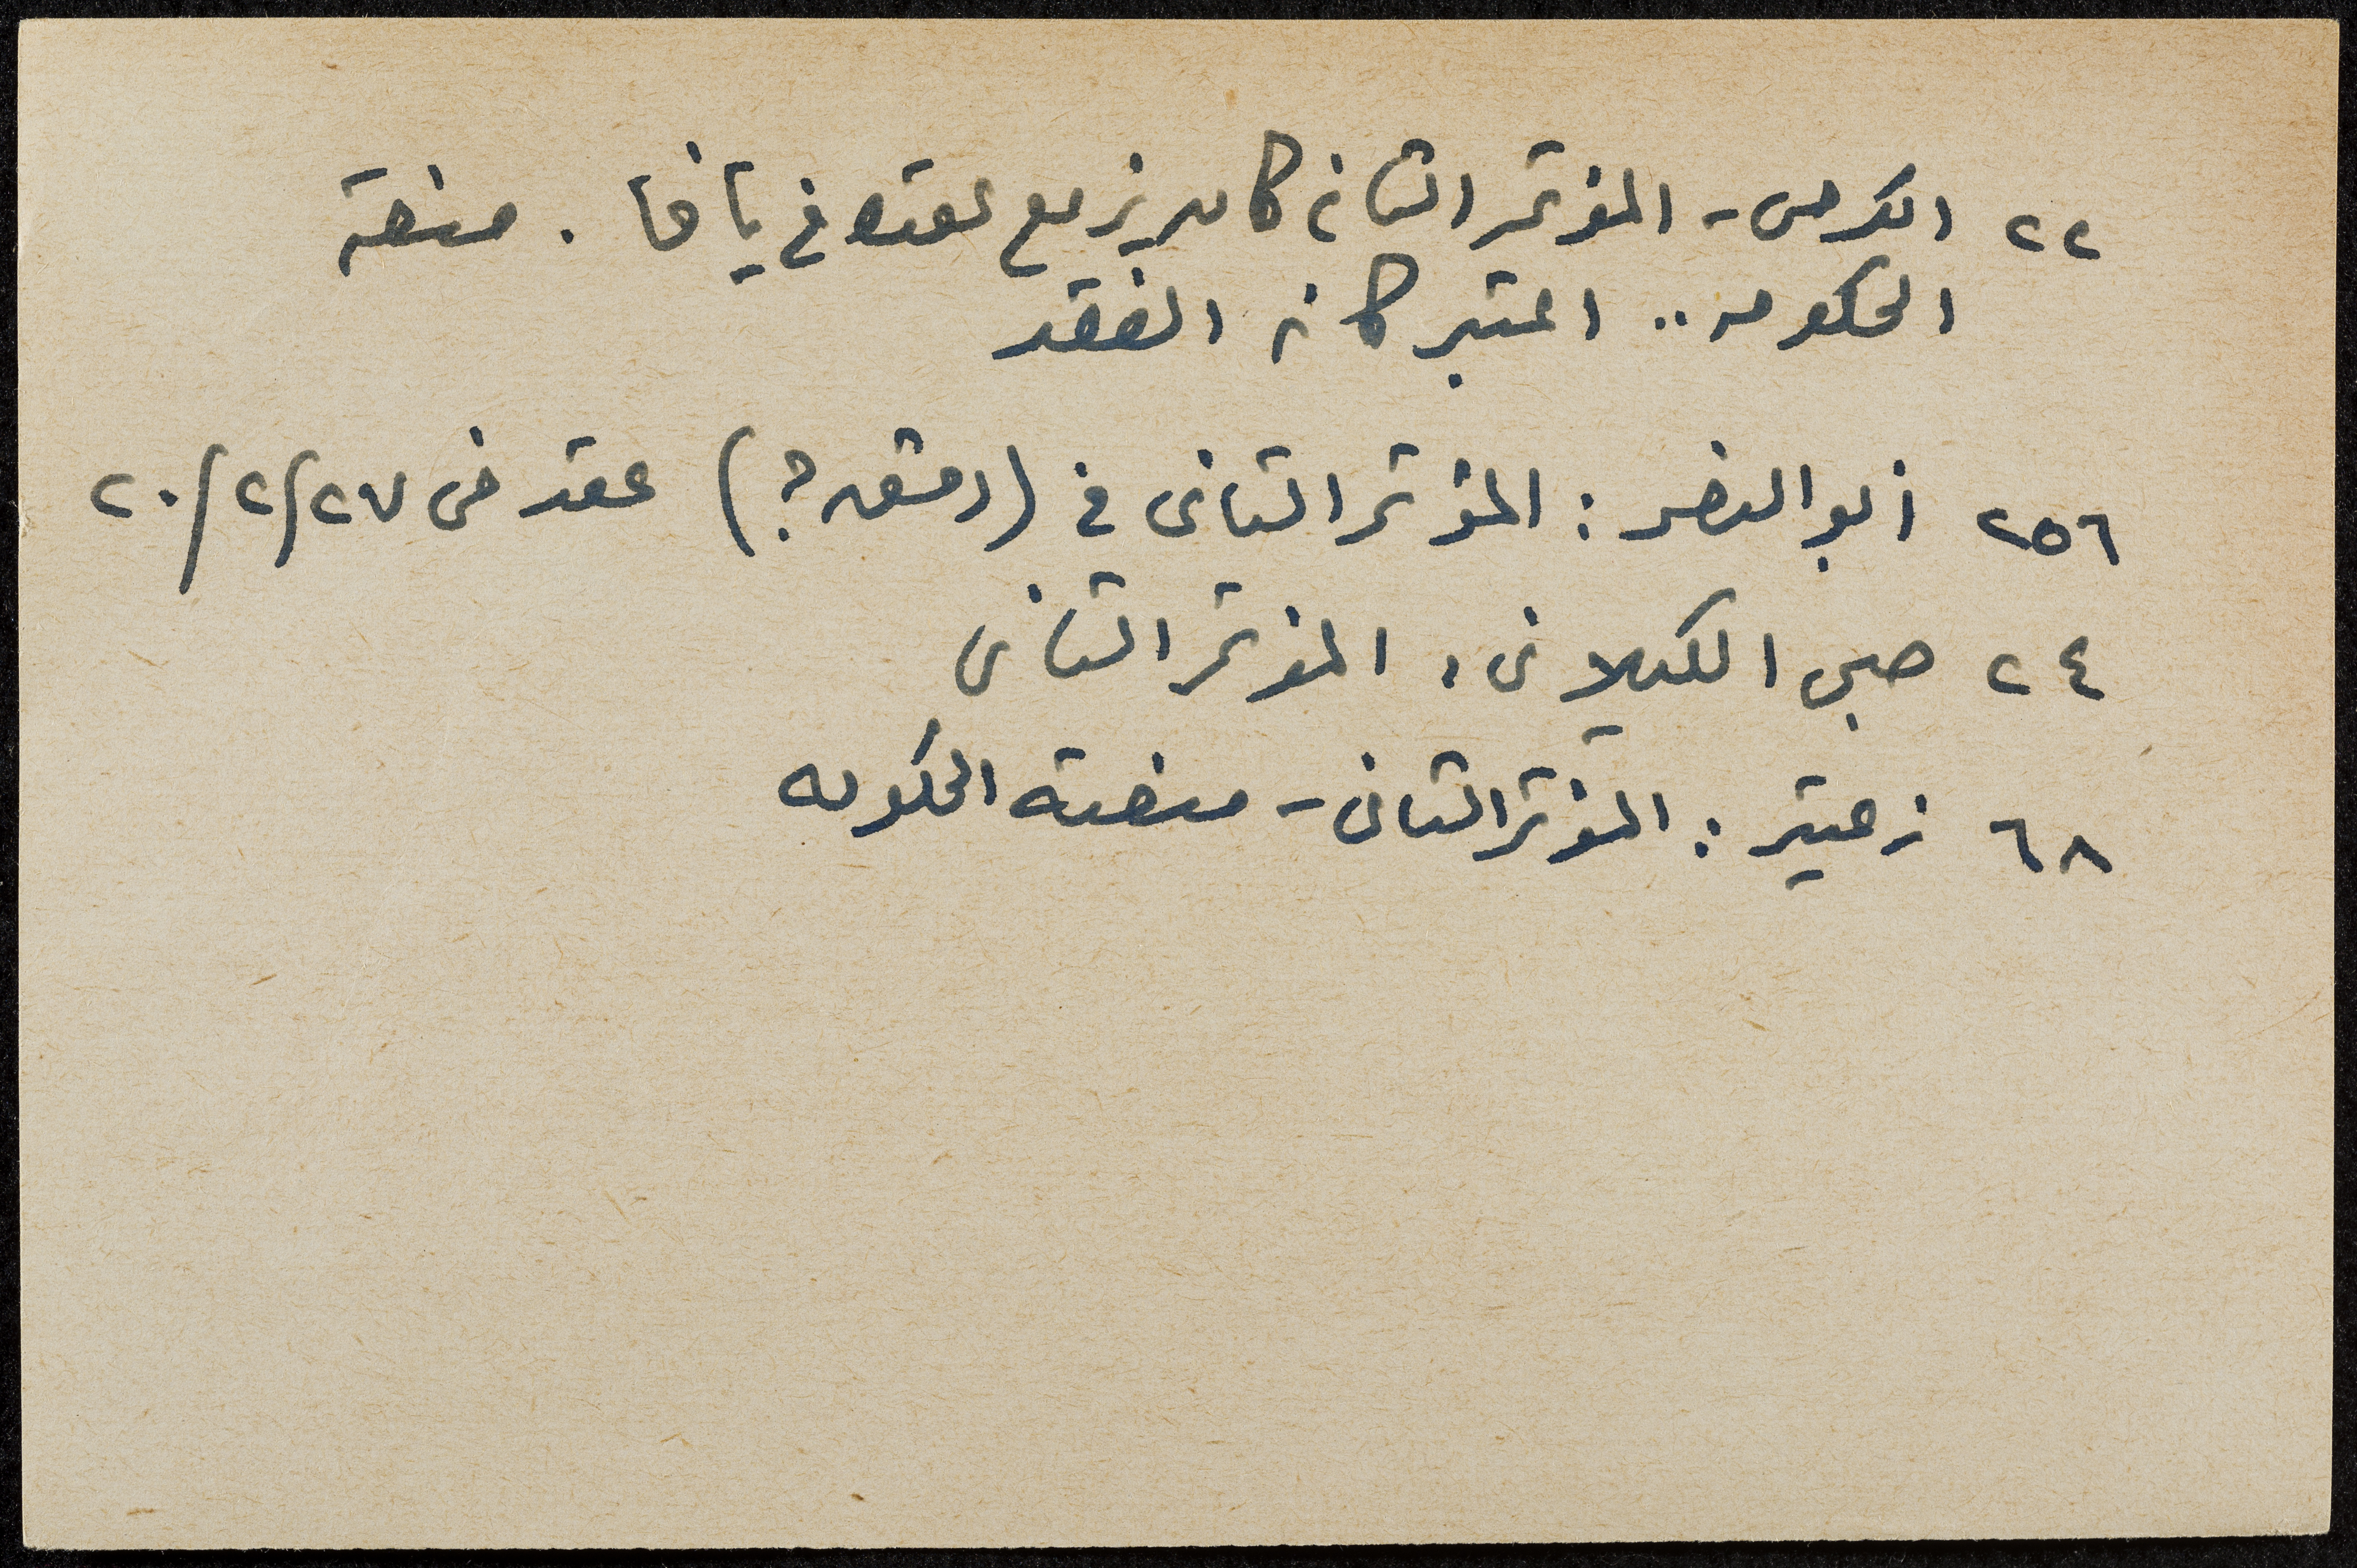 ٢٢ الكرمى - المؤتمر الثانى كان يزمع عقده فى يافا . منعته
الحكومه .. اعتبر كانه انعقد
٢٥٦ ابو النصر : المؤتمر الثانى في (دمشق ؟) عقد فى ٢٠/٢/٢٧
٢٤ صبحى الكيلانى : المؤتمر الثانى
٦٨ زعيتر : المؤتمر الثانى - منعته الحكومه